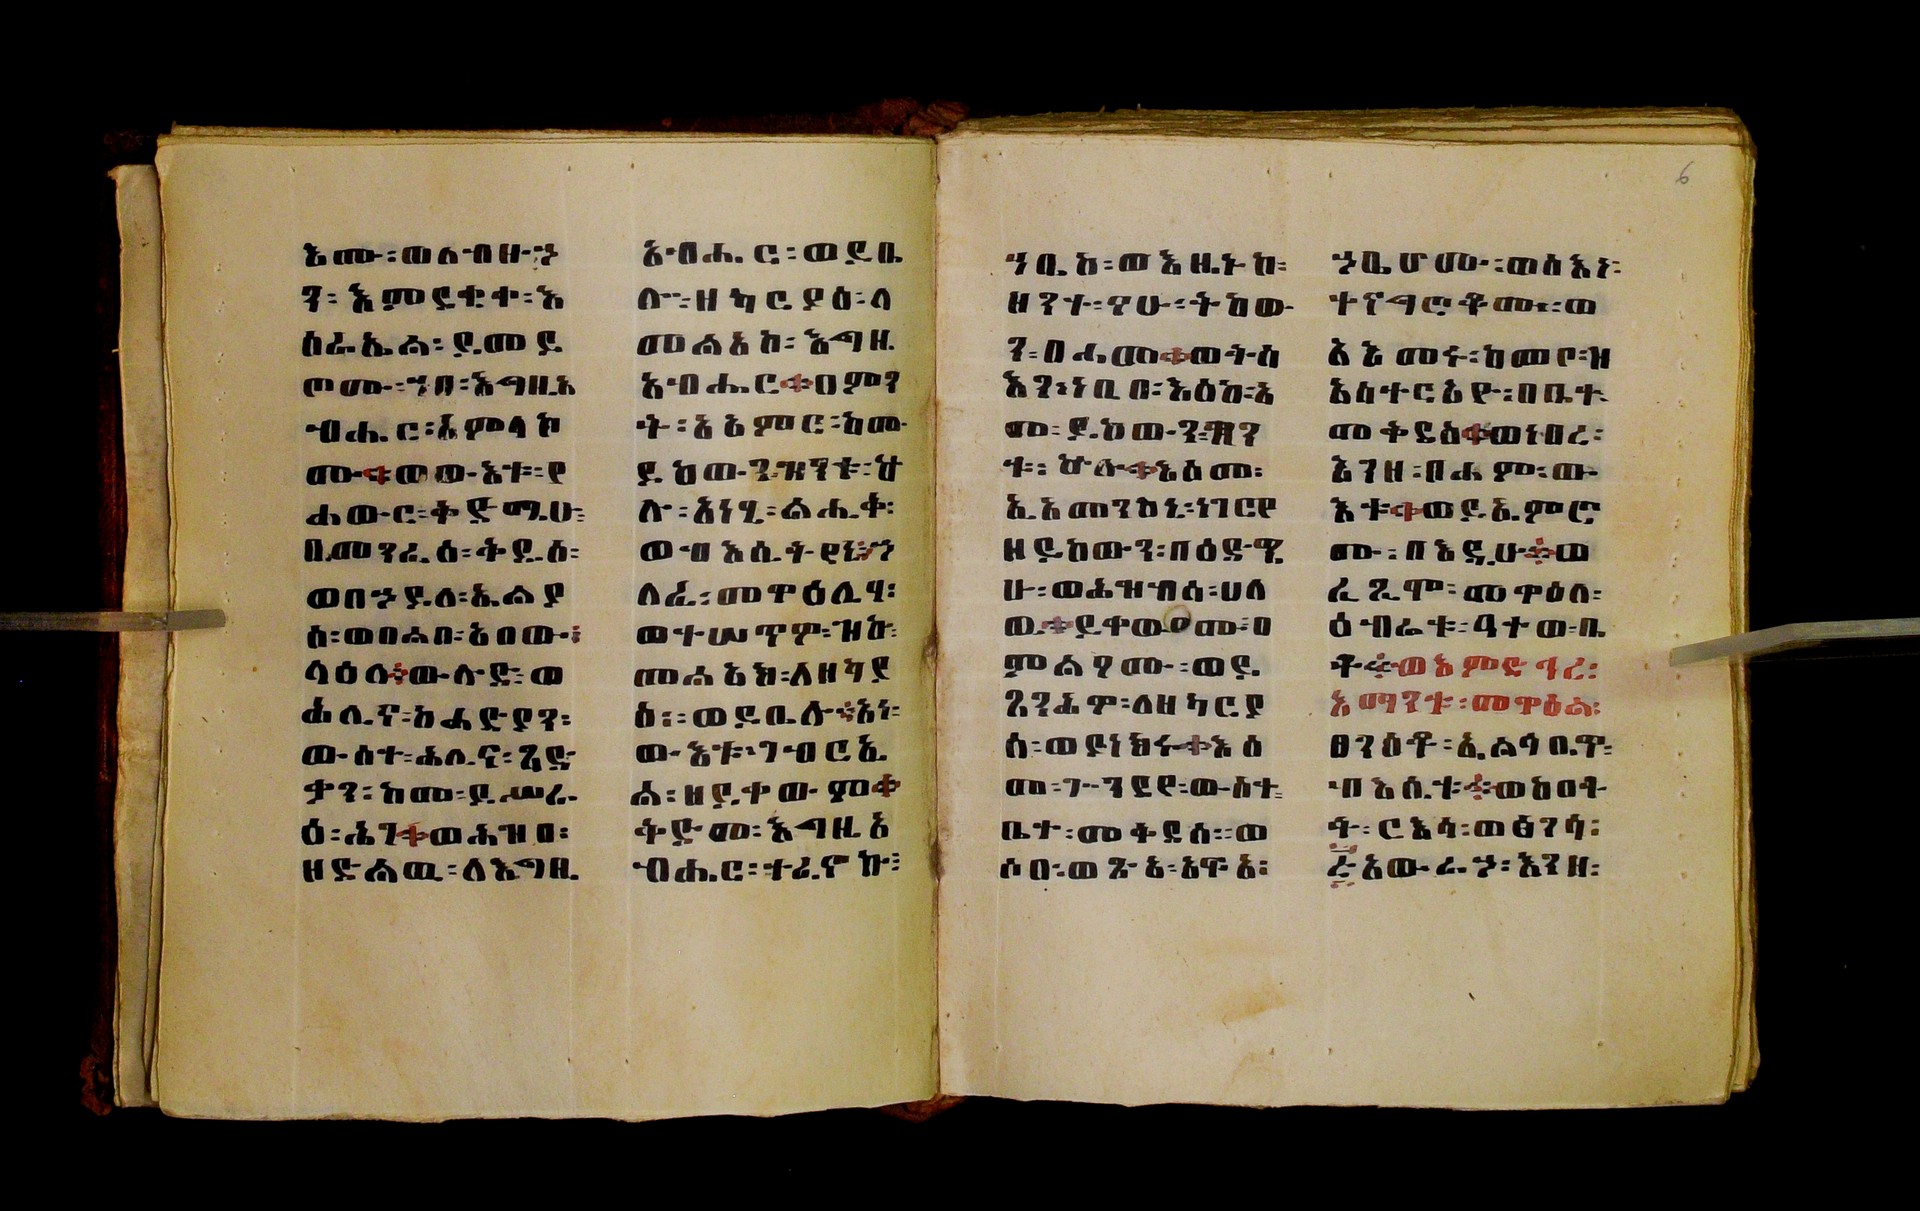 እሙ፡ወለብዙኃ
ን፡እምደቂቀ፡እ
ስራኤል፡ይመይ
ጦሙ፡ኀበ፡እግዚአ
ብሔር፡አምላኮ
ሙ።ወውእቱ፡የ
ሐውር፡ቅድሜሁ፡
በመንፈሰ፡ቅዱስ፡
ወበኃይለ፡ኤልያ
ስ፡ወበልበ፡አበው፡
ላዕለ፡ውሉድ፡ወ
ሕሊና፡ከሐድያን፡
ውስተ፡ሕሊና፡ጻድ
ቃን፡ከመ፡ይሠራ
ዕ፡ሕገ።ወሕዝበ፡
ዘድልወ፡ለእግዚ
አብሔር፡ወይቤ
ሎ፡ዘካርያስ፡ለ
መልአከ፡እግዚ
አብሔር።በምን
ት፡አአምር፡ከመ
ይከውን፡ዝንቱ፡ኵ
ሉ፡እነሂ፡ልሒቀ፡
ወብእሲትየኒ፡ኀ
ለፈ፡መዋዕሊሃ፡
ወተሠጥዎ፡ዝኩ፡
መልአክ፡ለዘካያ
ስ፡ወይቤሎ፡እነ፡
ውእቱ፡ገብርኤ
ል፡ዘይቀውም።
ቅድመ፡እግዚአ
ብሔር፡ተፈኖኩ፡
ኀቤከ፡ወእዜኑከ፡
ዘንተ፡ናሁ፡ትከው
ን፡በሐመ።ወትስ
እን፡ነቢበ፡እስከ፡አ
መ፡ይከውን፡ዝን
ቱ፡ኵሉ።እስመ፡
ኢአመንከኒ፡ነገርየ
ዘይከውን፡በዕድሜ
ሁ፡ወሕዝብሰ፡ሀለ
ዉ።ይቀውሙ፡በ
ምልዖሙ፡ወይ
ጸንሕዎ፡ለዘካርያ
ስ፡ወያነክሩ።እስ
መ፡ጐንደየ፡ውስተ፡
ቤተ፡መቅደስ፡ወ
ሶበ፡ወጽአ፡አፍአ፡
ኃቤሆሙ፡ወስእነ፡
ተናግሮቶሙ፡ወ
አእመሩ፡ከመቦ፡ዘ
አስተርአዮ፡በቤተ
መቅደስ።ወነበረ፡
እንዘ፡በሐም፡ው
እቱ።ወይኤምር
ሙ፡በእዲሁ፡ወ
ፈጺሞ፡መዋዕለ፡
ዕብሬቱ፡ዓተወ፡ቤ
ቶ፡ወእምድኅረ፡
እማንቱ፡መዋዕል፡
ፀንሰት፡ኤልሳቤጥ፡
ብእሲቱ፡ወከበተ
ት፡ርእሳ፡ወፅንሳ፡
፭አውራኃ፡እንዘ፡